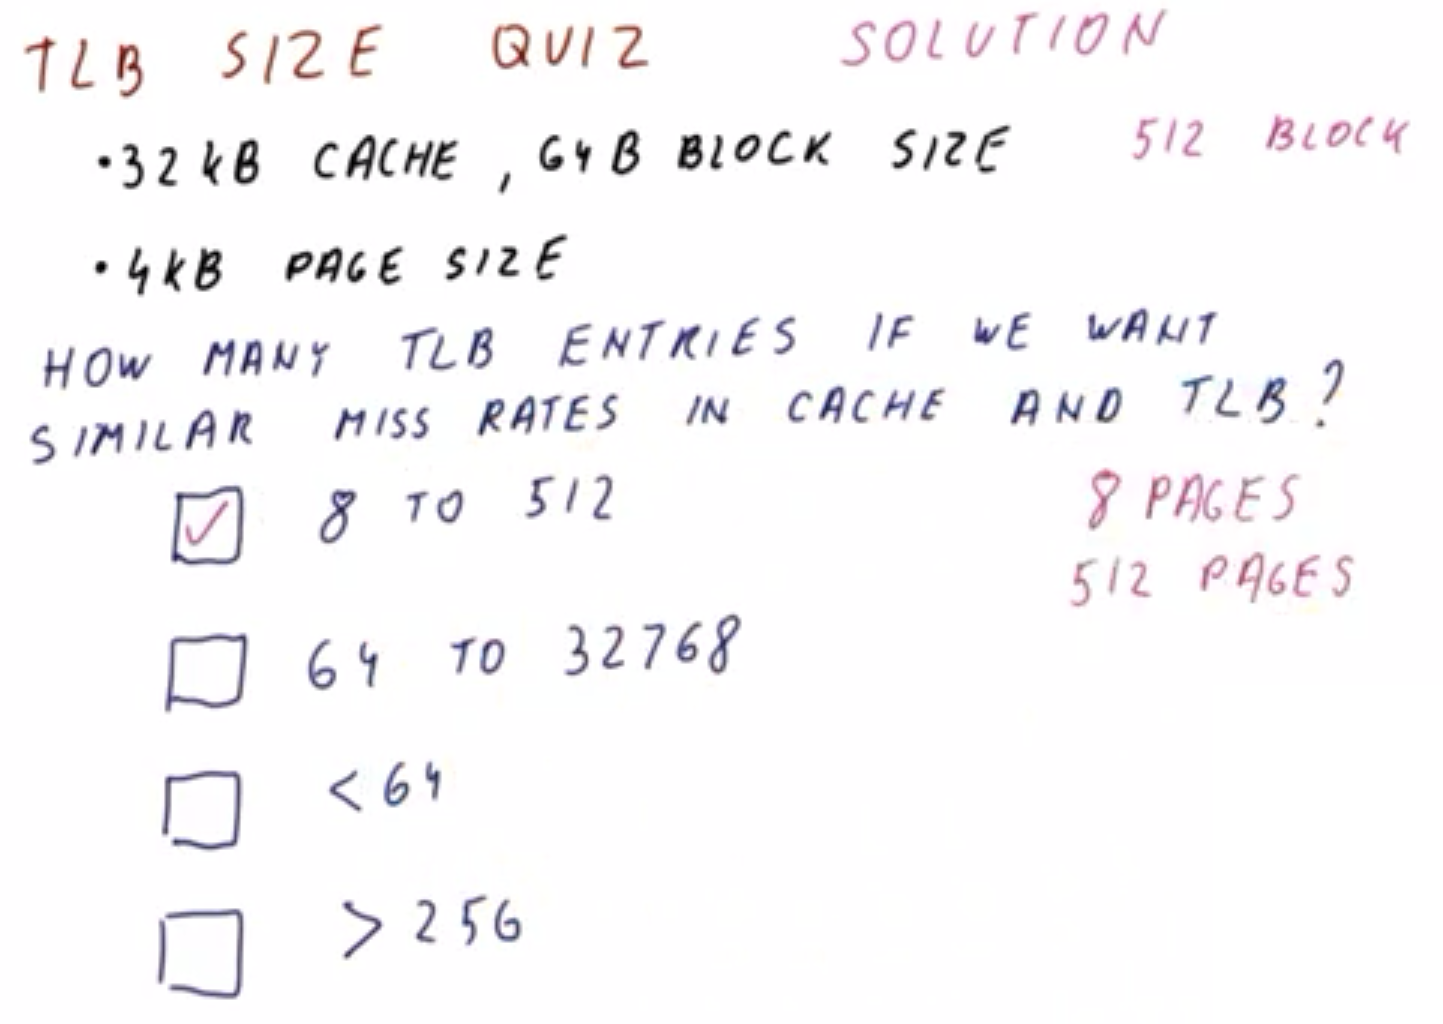 TLB SIZE QUIZ SOLUTION
•32kB CACHE, 64B BLOCK SIZE 512 BLOCK
•4kB PAGE SIZE
HOW MANY TLB ENTRIES IF WE WANT
SIMILAR MISS RATES IN CACHE AND TLB?
✓ 8 TO 512 8 PAGES
512 PAGES
64 TO 32768
<64
>256